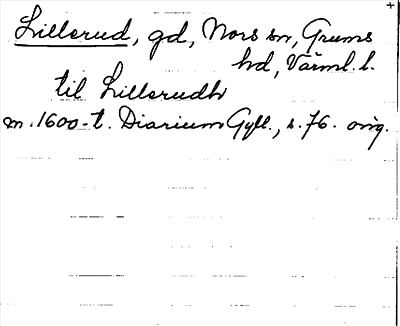 Lillerud, gd, Nors sn, Grums
hd, Värml. l.
til Lillerudh
m. 1600-t. Diarium Gyll., s. 76. orig.